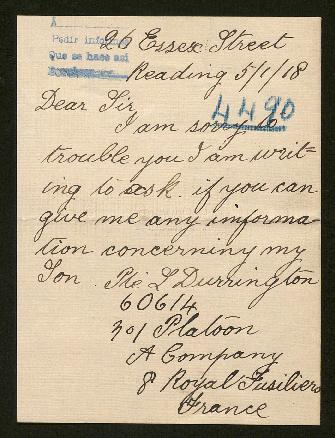 A
Pedir informes
Que se hace asi
26 Essex Street
Reading 5/1/18
4490
Dear Sir
I am sorry to
trouble you I am writ-
ing to ask if you can
give me any informa-
tion concerning my
Son. Pte. L Durrington
60614
201 Platoon
A Company
8 Royal Fusiliers
France